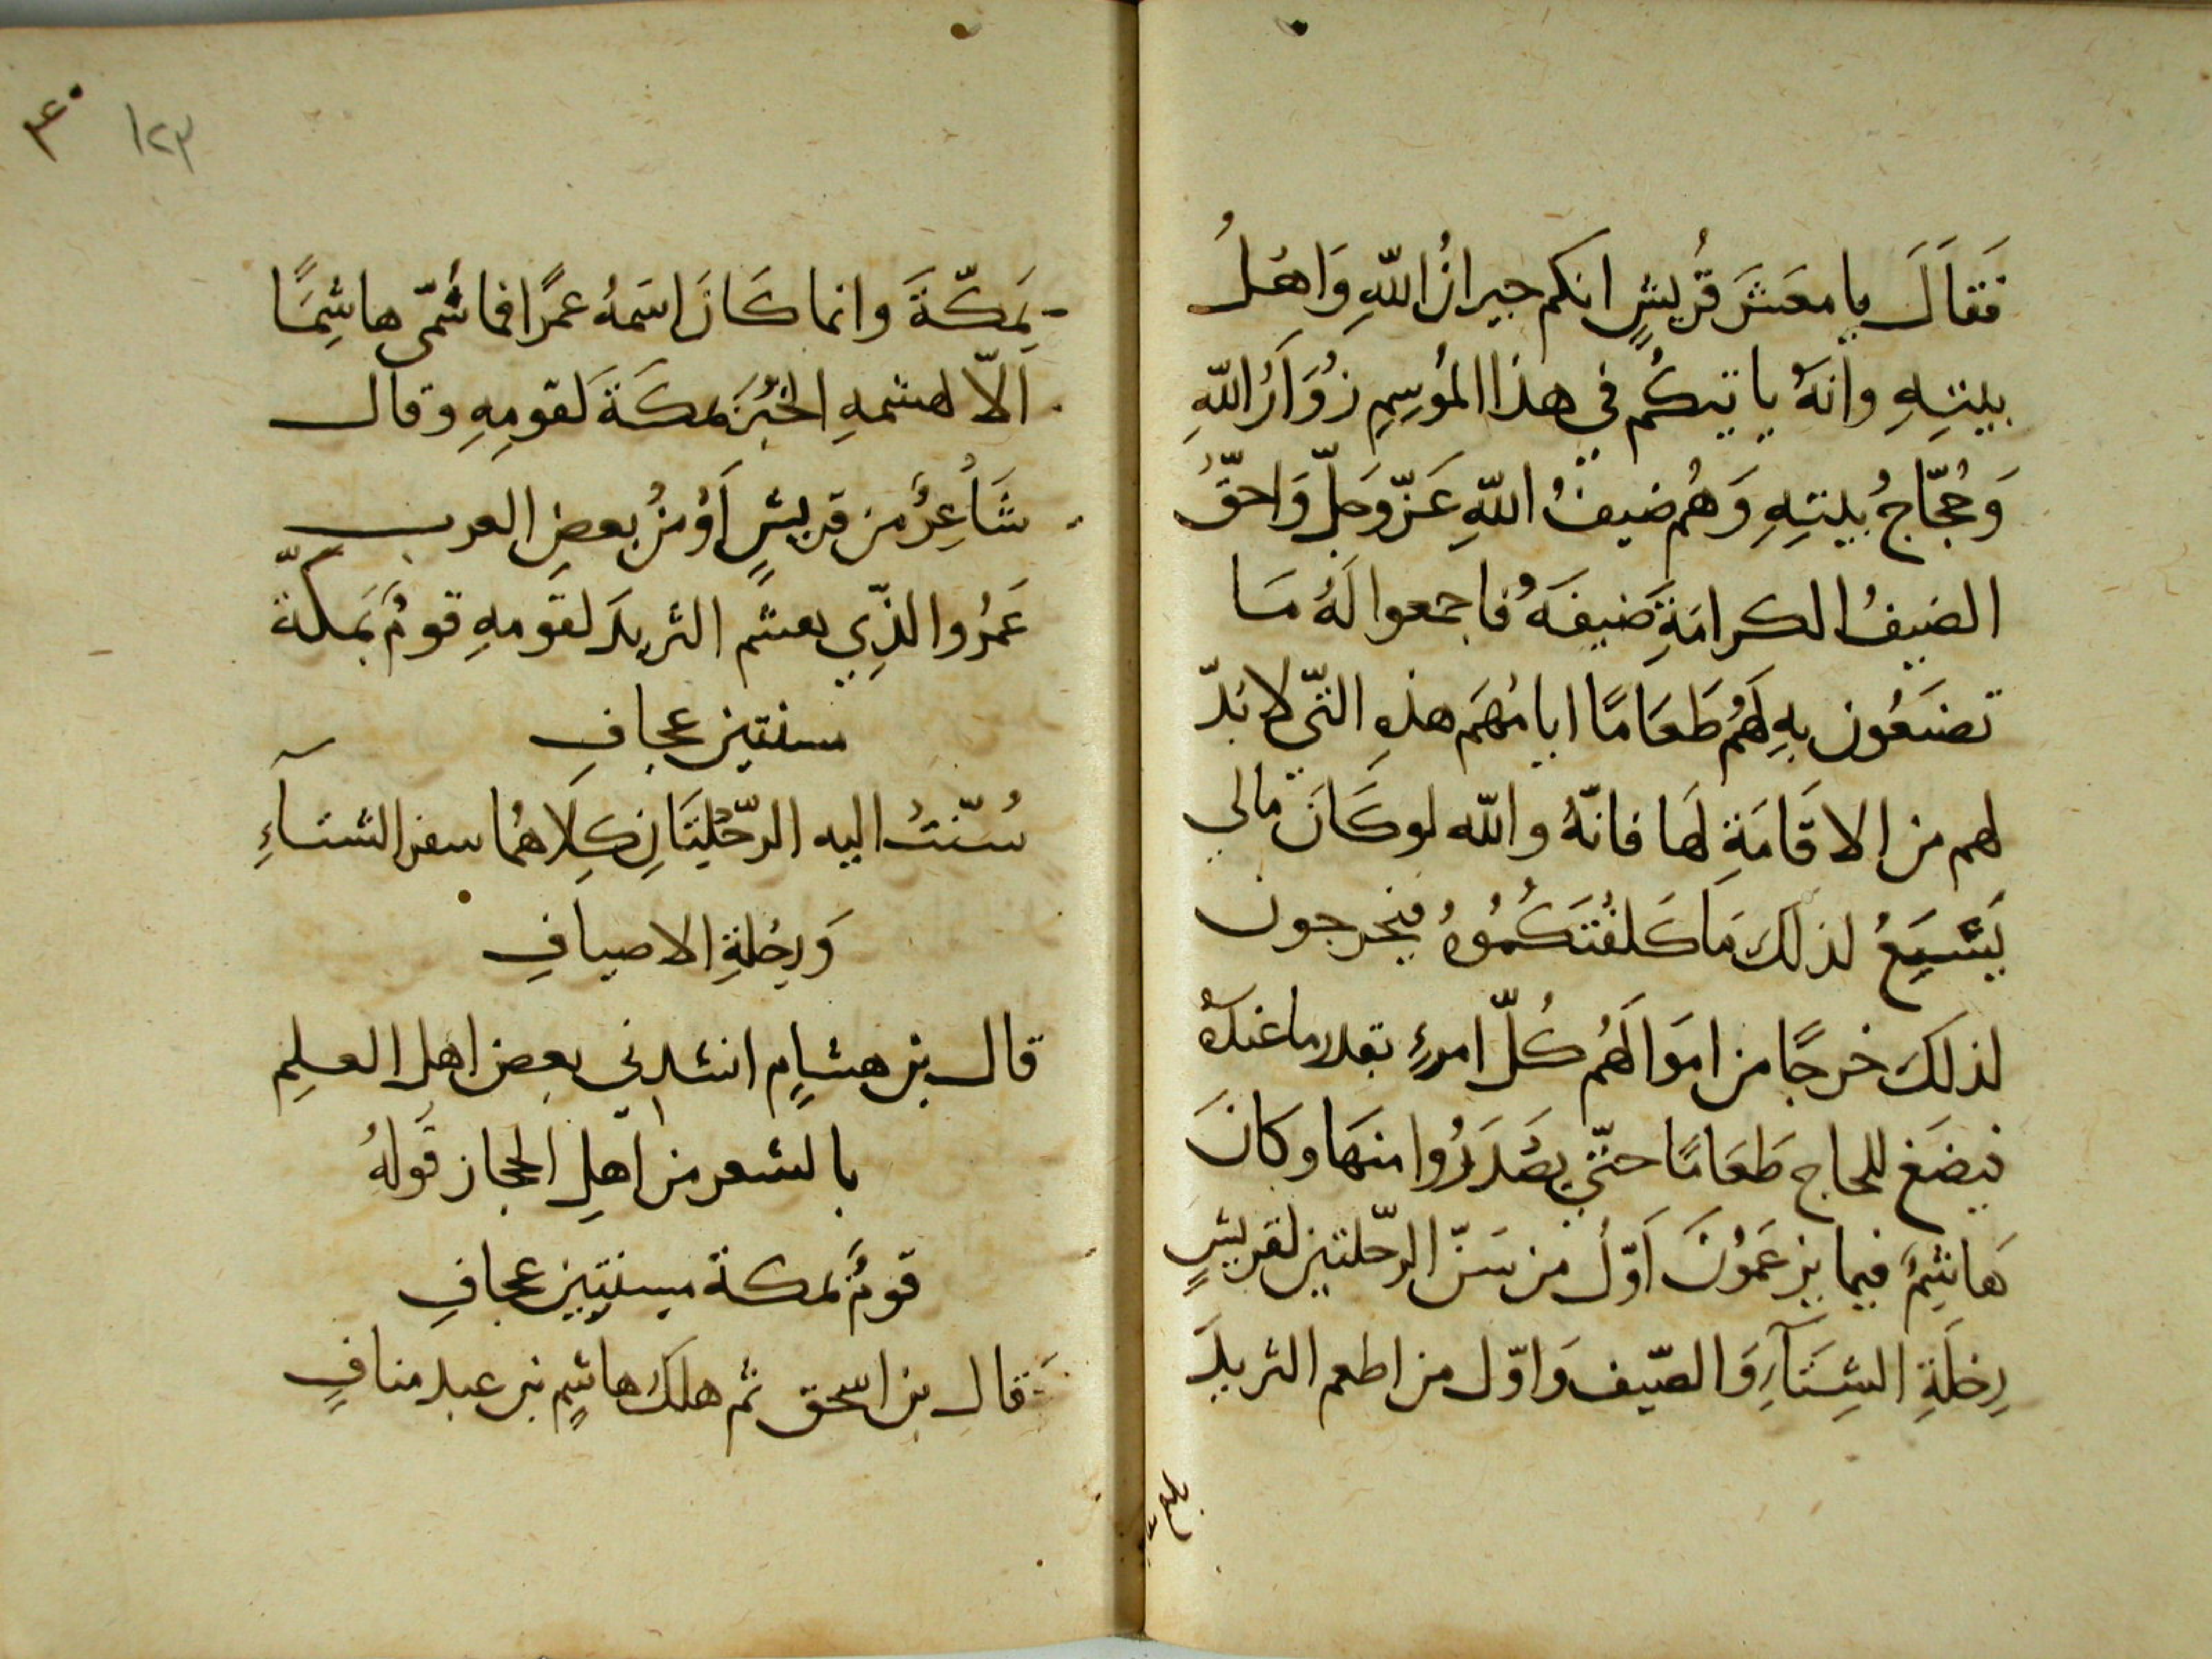 فَقَالَ يا معَشَرَ قُريشٍ انكم جيرانُ اللّهِ وَاهلُ
بيتِهِ وانهُ ياتيكُم في هذا المُوسِمِ زُوَّارُ اللّهِ
وَحُجّاجُ بيتِهِ وَهُم ضيفُ اللّهِ عَزّ وَجلّ وَاحقّ
الضيفُ الكرامَةِ ضيفَهُ فاجمعوا لَهُ مَا
تصنَعُون بهِ لَهُم طَعَامًا ايامُهَم هذِهِ التّي لا بدّ
لهم من الاقَامَةِ لَها فانّهُ واللّه لو كَانَ مالي
يَتّسِعُ لذلك مَا كَلفُتَكُمُوهُ فيخرجون
لذلكَ خرجًا من اموَالهُم كُلّ امرءٍ بقدر ما عندهُ
فيضَع للحاج طَعَامًا حتّي يصَدَرُوا منهَا وكانَ
هَاشِمُ فيما يزعَمُونَ اَوّلُ من سَنّ الرّحلتين لقريشٍ
رِحلَةِ الشِتَآءِ وَالصّيف وَاوّل من اطعم الثريدَ
بلغ
١٢٣
٤٠
بَمكّةَ وانما كَانَ اسَمهُ عمرًا فما سُمّي هاشِمًا
الاّ لهشمهِ الخُبزَ بمكَةَ لقومِهِ وقال
شَاعِرٌ من قريشٍ اَوْ مِنْ بعضِ العرب
عَمرُوا الذّي هشم الثريدَ لقومهِ قومٌ بمَكّة
سنتين عجافِ
سُنّتُ اليه الرّحُلِتَانِ كِلاهُما سفر الشتآءِ
وَرِحُلةِ الاصيافِ
قال بن هشامٍ انشدني بعض اهل العلِم
بالشعر من اهلِ الحجاز قَولهُ
قومٌ بمكة مسنتين عجافِ
قال بن اسحق ثم هلكَ هاشمٍ بن عبد منافٍ